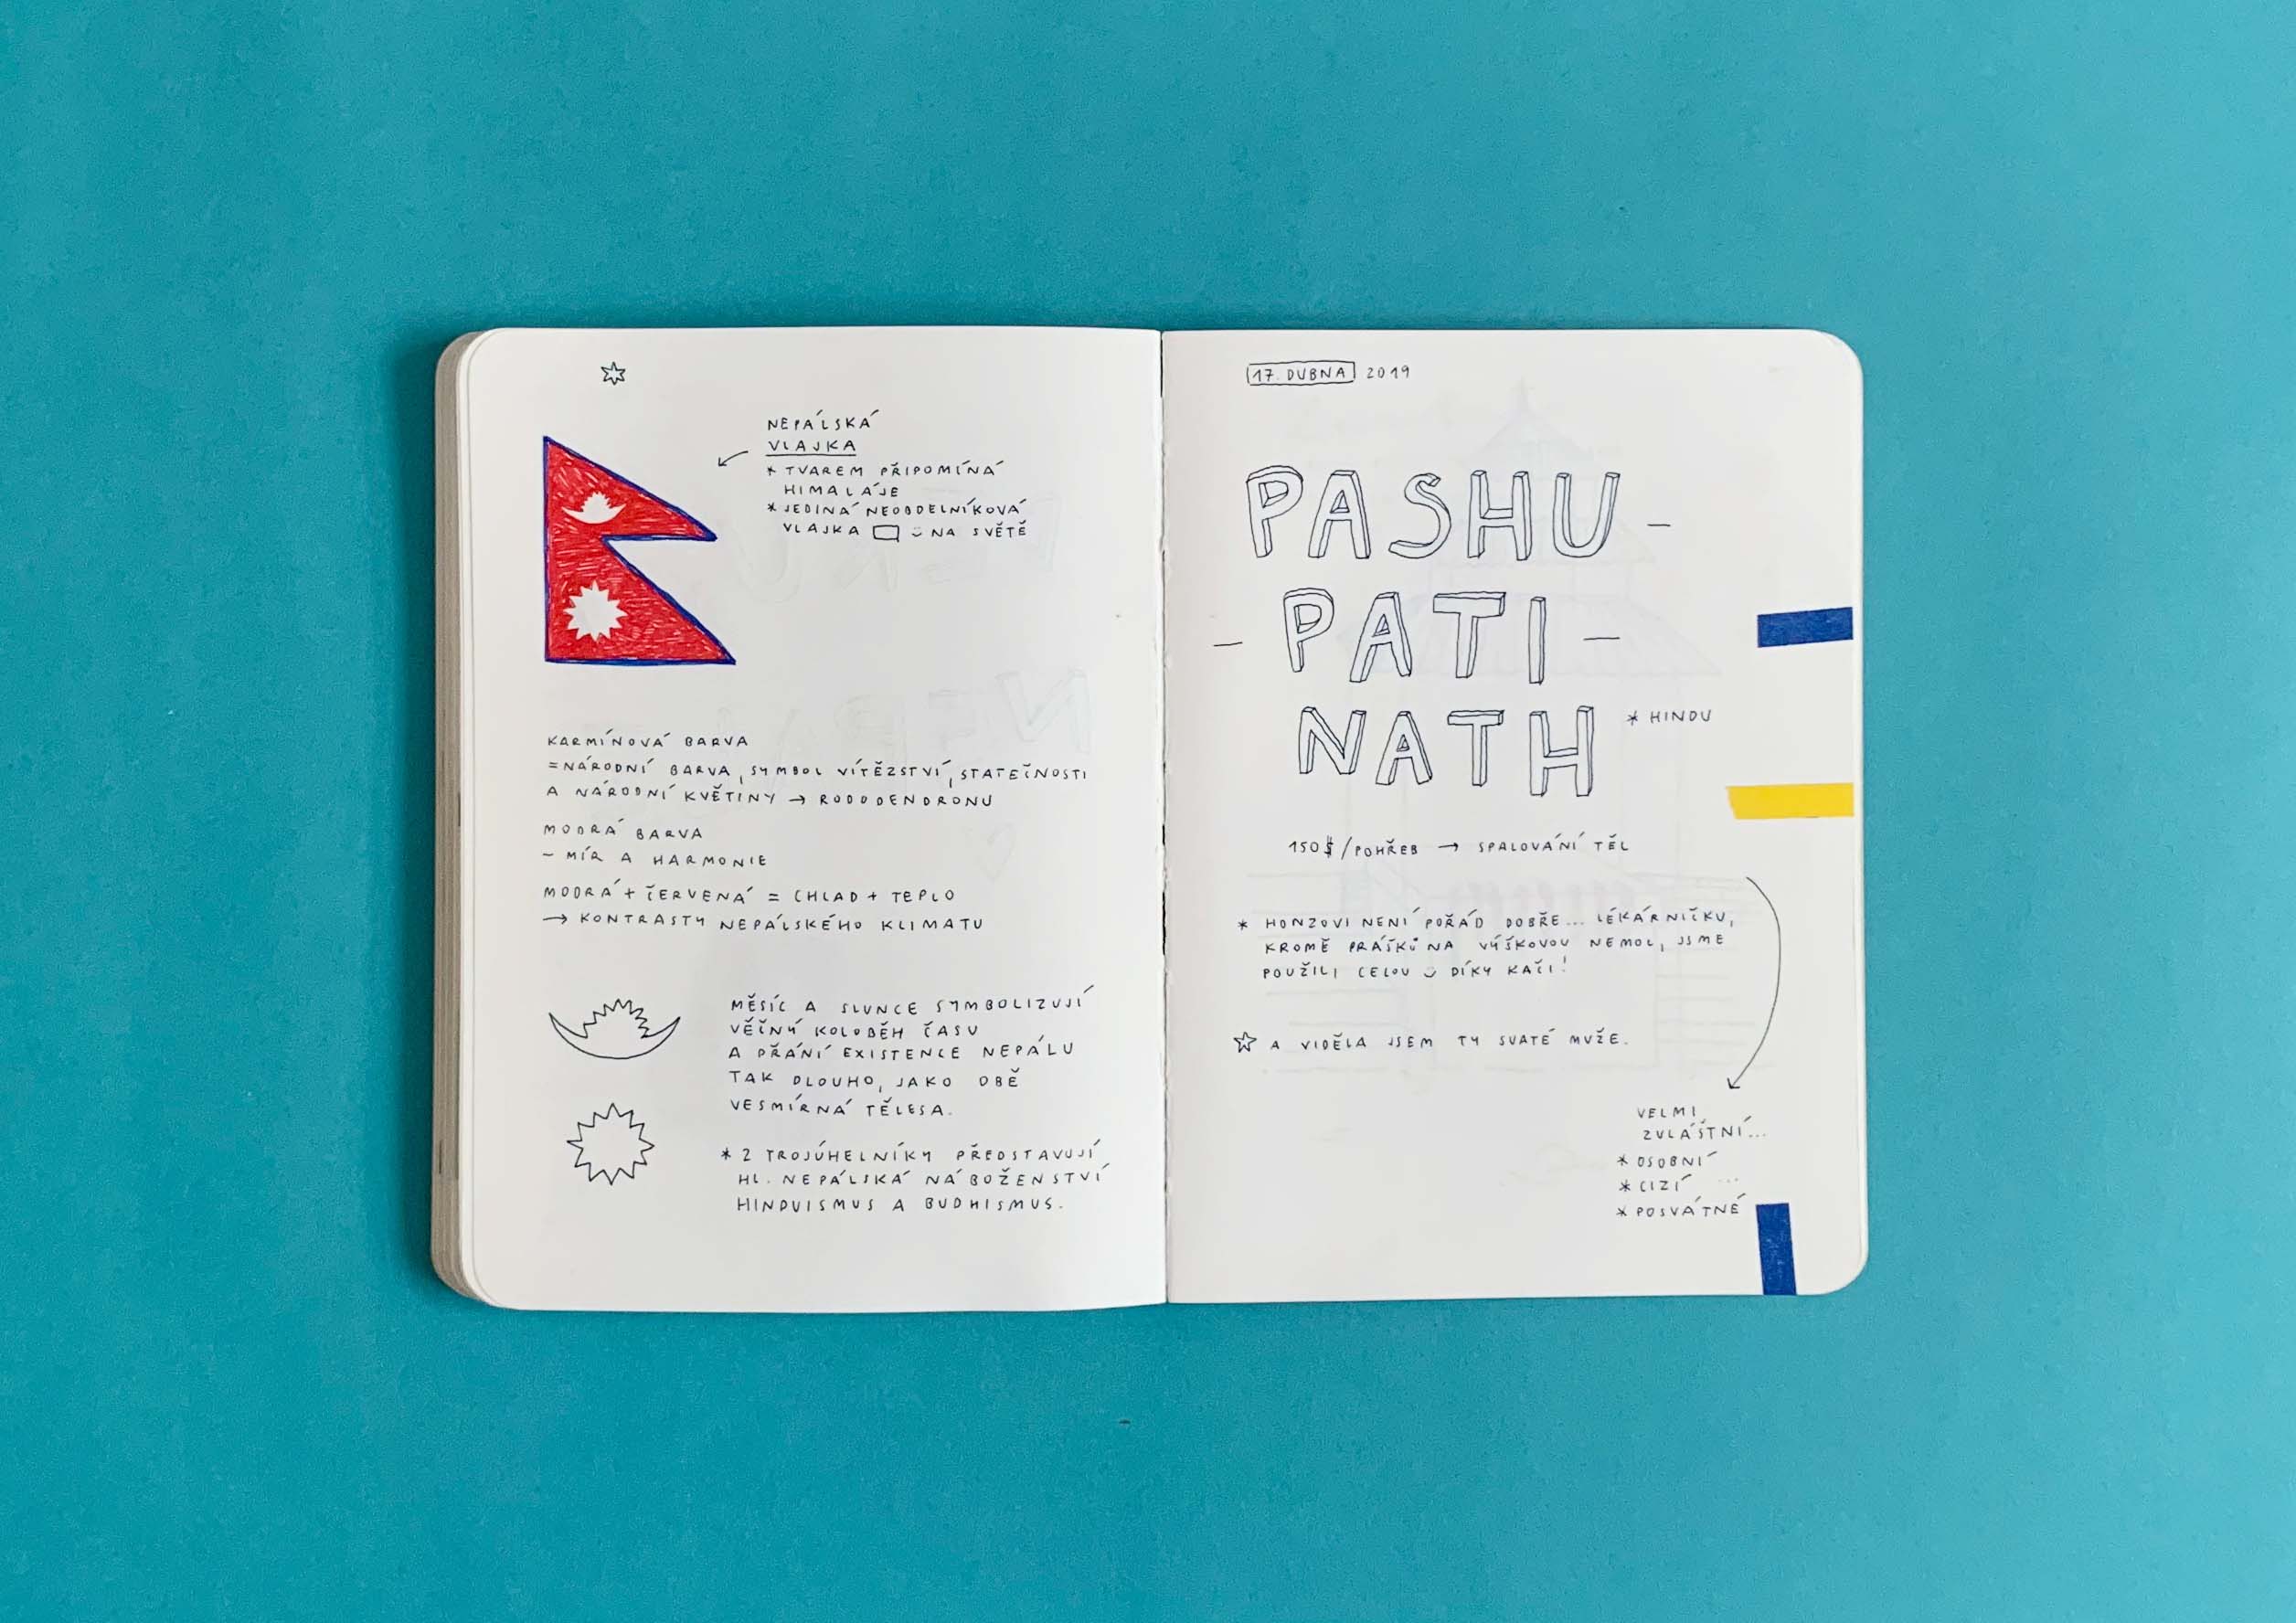 NEPÁLSKÁ
VLAJKA
* TVAREM PŘIPOMÍNÁ
HIMALÁJE
* JEDINÁ NEOBDELNÍKOVÁ
VLAJKA NA SVĚTĚ
KARMÍNOVÁ BARVA
= NÁRODNÍ BARVA, SYMBOL VÍTĚZSTVÍ, STATEČNOSTI
A NÁRODNÍ KVĚTINY → RODODENDRONU
MODRÁ BARVA
- MÍR A HARMONIE
MODRÁ + ČERVENÁ = CHLAD + TEPLO
→ KONTRASTY NEPÁLSKÉHO KLIMATU
MĚSÍC A SLUNCE SYMBOLIZUJÍ
VĚČNÝ KOLOBĚH ČASU
A PŘÁNÍ EXISTENCE NEPÁLU
TAK DLOUHO, JAKO OBĚ
VESMÍRNÁ TĚLESA.
* 2 TROJÚHELNÍKY PŘEDSTAVUJÍ
HL. NEPÁLSKÁ NÁBOŽENSTVÍ
HINDUISMUS A BUDHISMUS.
17. DUBNA 2019
PASHU-
- PATI -
NATH * HINDU
150$/POHŘEB → SPALOVÁNÍ TĚL
* HONZOVI NENÍ POŘÁD DOBŘE... LÉKÁRNIČKU,
KROMĚ PRÁŠKŮ NA VÝŠKOVOU NEMOC, JSME
POUŽILI CELOU DÍKY KAČI!
☆ A VIDĚLA JSEM TY SVATÉ MUŽE.
VELMI
ZVLÁŠTNÍ...
* OSOBNÍ
* CIZÍ ...
* POSVÁTNÉ